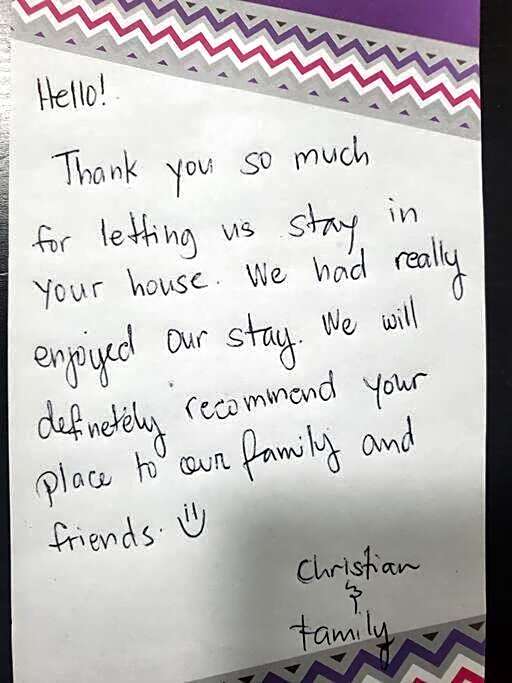 Hello!
Thank you so much
for letting us stay in
your house. We had really
enjoyed our stay. We will
definetely recommend your
place to our family and
friends. :)
Christian
&
Family